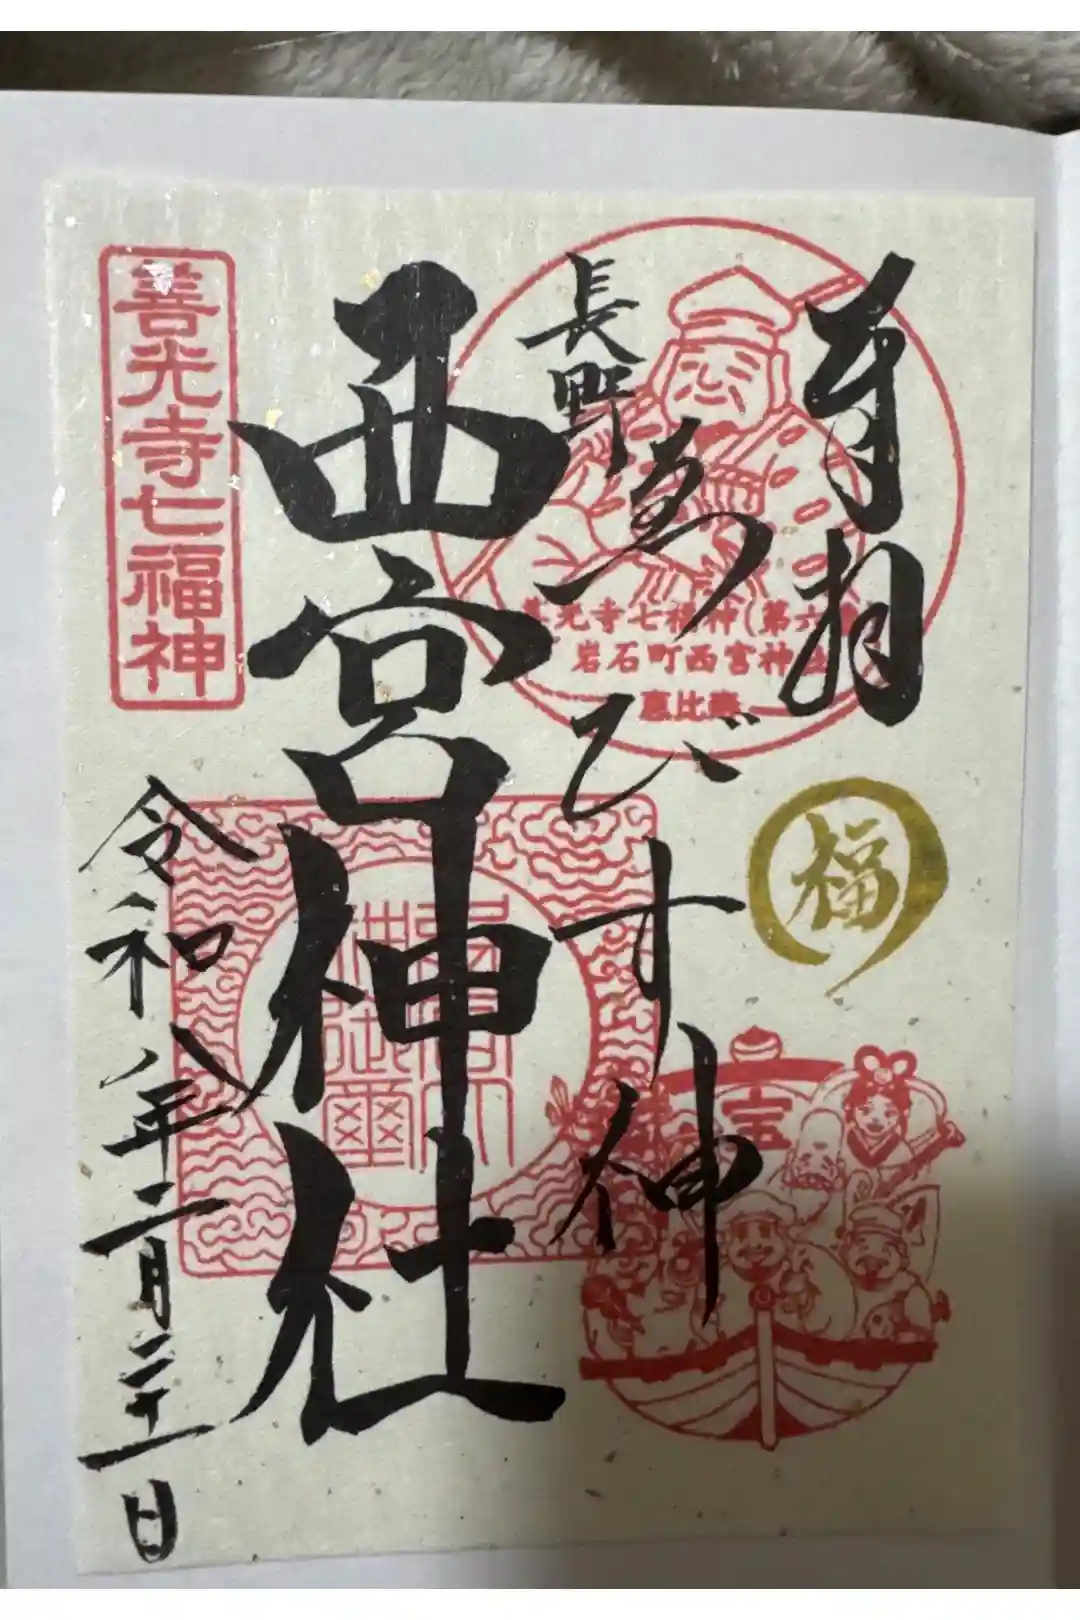 長野ゑびす神
西宮神社
令和八年二月二十一日
善光寺七福神
善光寺七福神(第六
岩石町西宮神社
恵比寿
福